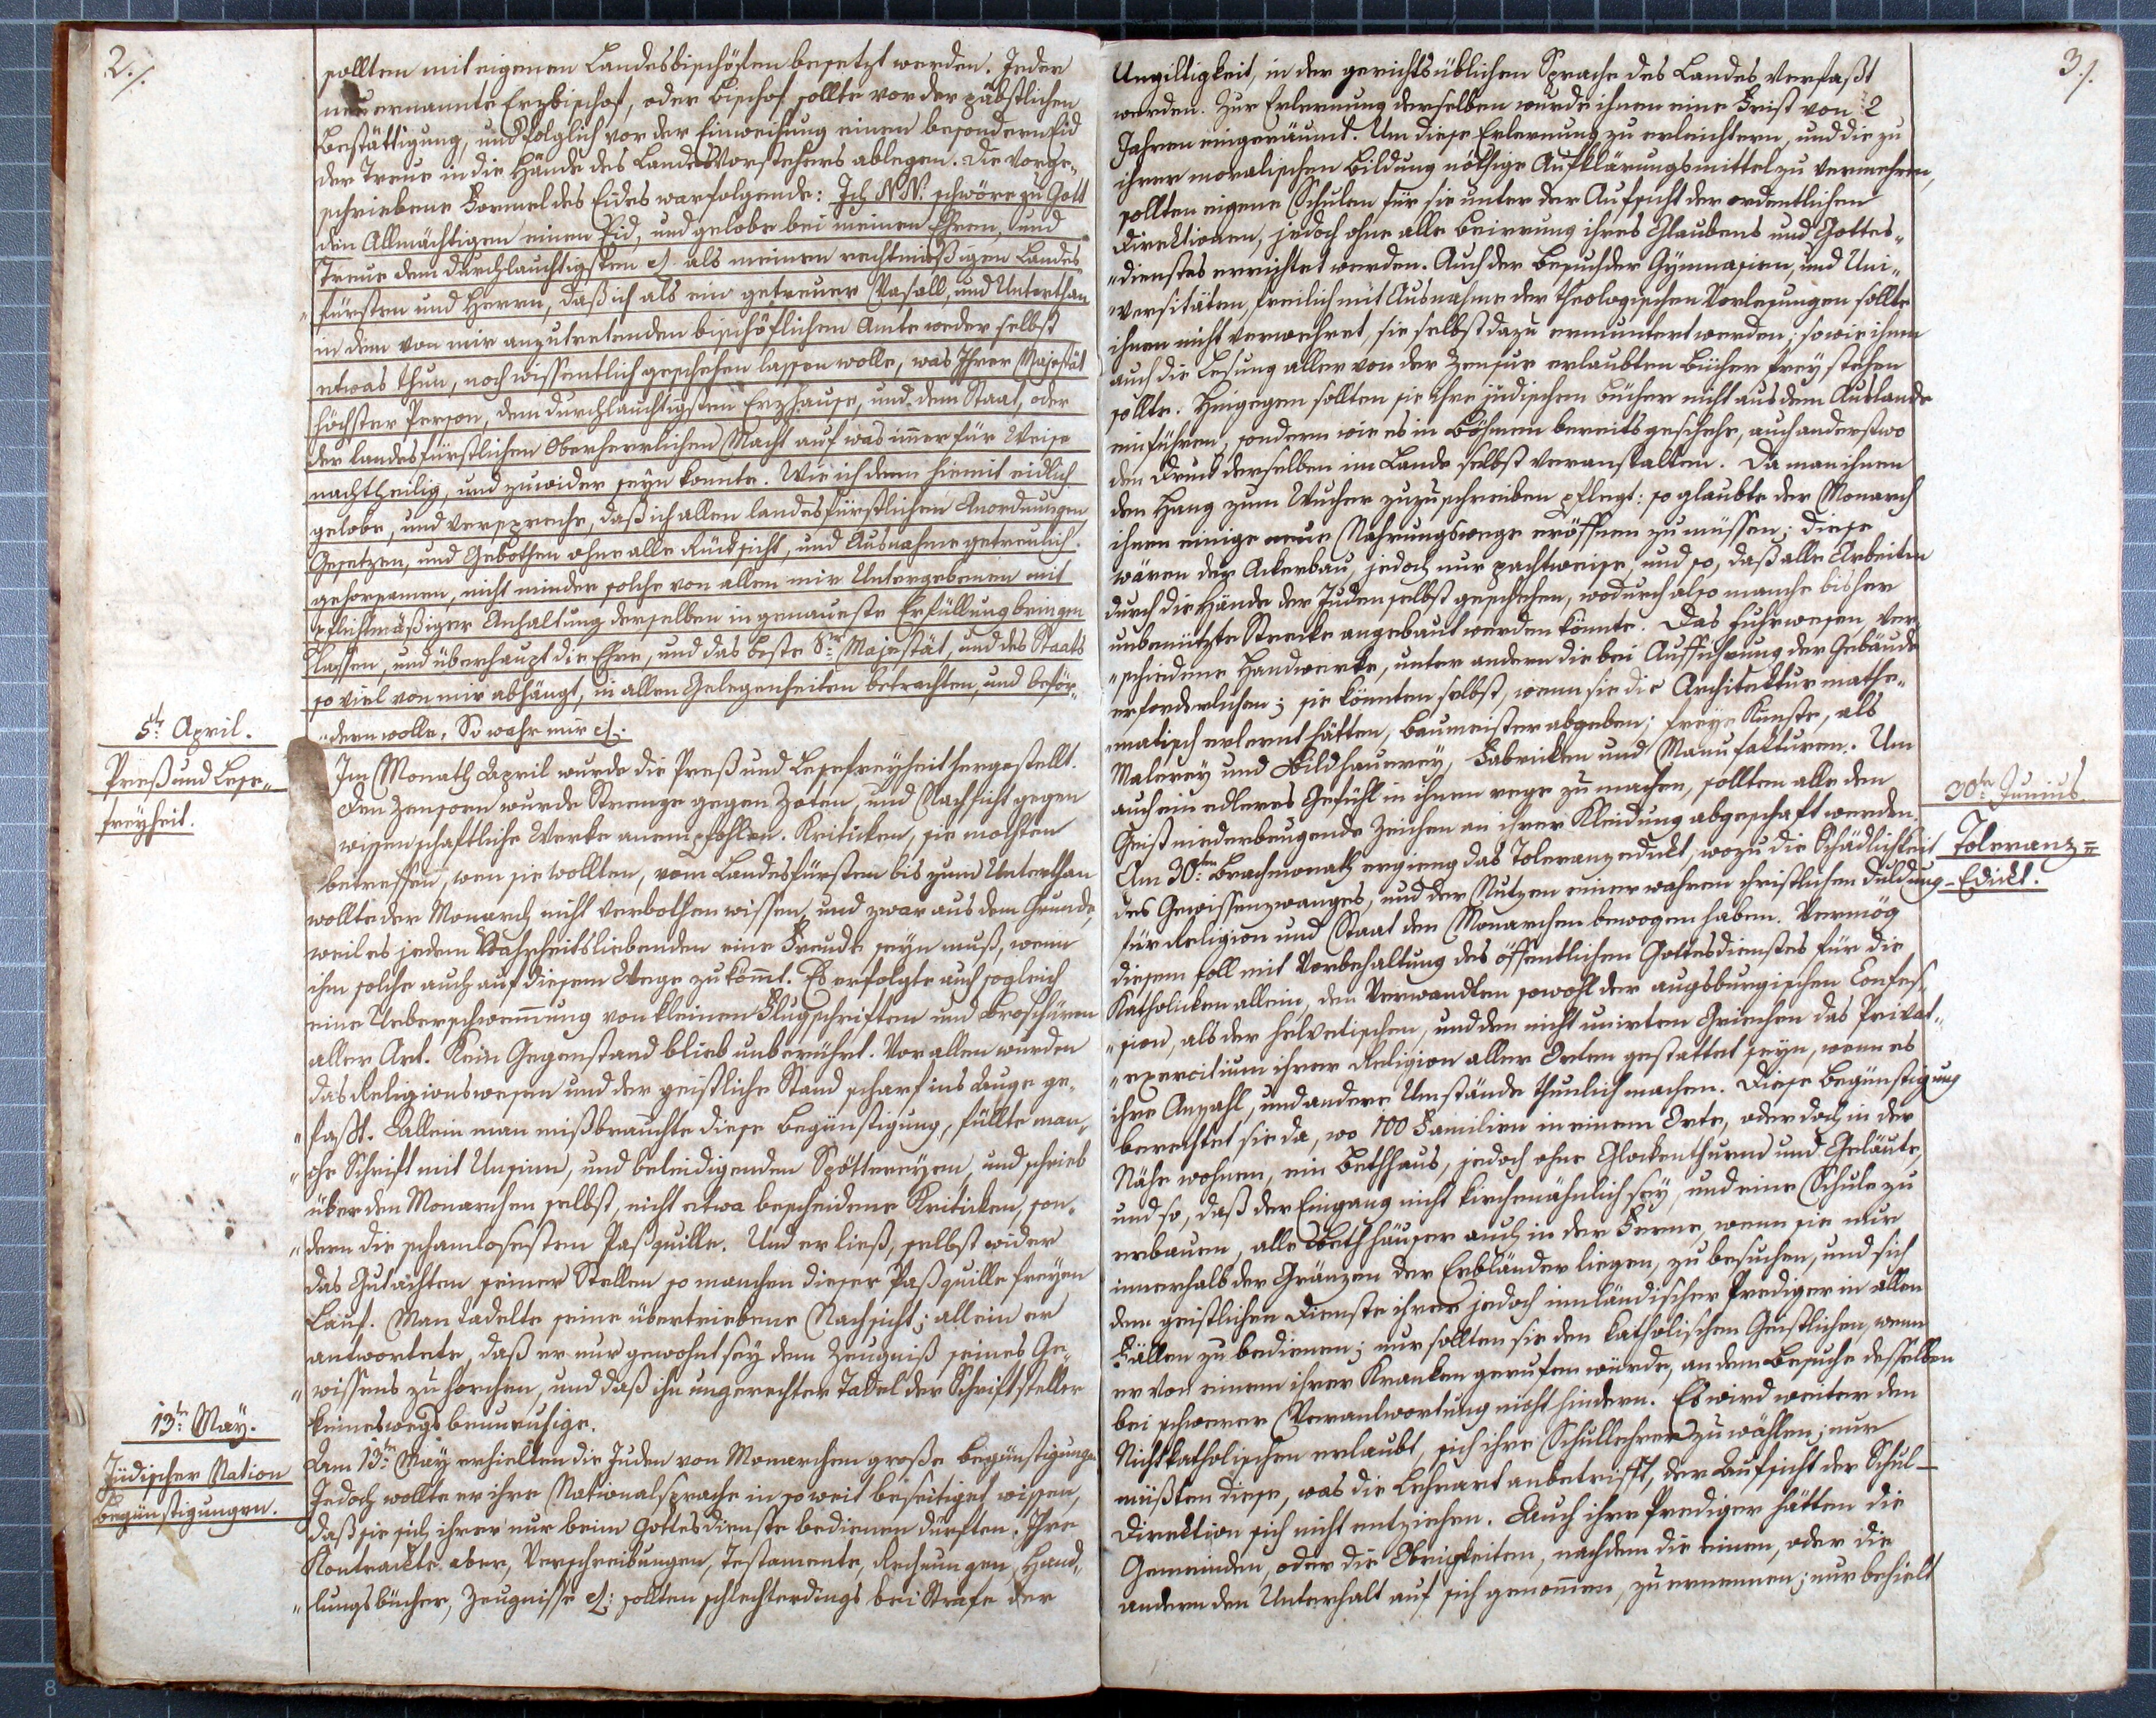 2./.
sollten mit eigenen Landesbischöfen besetzt werden. Jeder
neu ernannte Erzbischof, oder Bischof sollte vor der päbstlichen
Bestättigung, und folglich vor der Einweihung einen besondern Eid
der Treue in die Hände des Landesvorstehers ablegen. Die vorge„
schriebene Formel des Eides war folgende: Ich N.N. schwöre zu Gott
dem Allmächtigen einen Eid, und gelobe bei meinen Ehren, und
Treue dem durchlauchtigsten etc. als meinen rechtmäßigen Landes
„fürsten und Herrn, daß ich als ein getreuer Vasall, und Unterthan
in dem von mir anzutretenden bischöflichen Amte weder selbst
etwas thun, noch wissentlich geschehen lassen wolle, was Ihrer Majestät
höchster Person, dem durchlauchtigsten Erzhause, und dem Staat, oder
der landesfürstlichen Oberherrlichen Macht auf was immer für Weise
nachtheilig, und zuwider seyn konnte. Wie ich denn hiemit eidlich
gelobe, und verspreche, daß ich allen landesfürstlichen Anordnungen,
Gesetzen, und Gebothen ohne alle Rücksicht, und Ausnahme getreulich
gehorsamen, nicht minder solche von allen mir Untergebenen mit
pflichtmäßiger Anhaltung derselben in genaueste Erfüllung bringen
lassen, und überhaupt die Ehre, und das beste Sr. Majestät, und des Staats
so viel von mir abhängt, in allen Gelegenheiten betrachten, und beför„
„dern wolle, So wahr mir etc.
5te April.
Preß und Lese„
freyheit.
Im Monath April wurde die Preß und Lesefreyheit hergestellt.
Den Zensorn wurde Strenge gegen Zoten, und Nachsicht gegen
wissenschaftliche Werke anempfohlen. Kritiken, sie mochten
betreffen, wen sie wollten, vom Landesfürsten bis zum Unterthan
wollte der Monarch nicht verbothen wissen, und zwar aus dem Grunde,
weil es jedem Wahrheitsliebenden eine Freude seyn muß, wenn
ihm solche auch auf diesem Wege zukömt. Es erfolgte auch sogleich
eine Ueberschwemung von kleinen Flugschriften und Broschüren
aller Art. Kein Gegenstand blieb unberührt. Vor allen wurden
das Religionswesen und der geistliche Stand scharf ins Auge ge„
„faßt. Allein man mißbrauchte diese Begünstigung, füllte man„
„che Schrift mit Unsinn, und beleidigenden Spöttereyen, und schrieb
über den Monarchen selbst, nicht etwa bescheidene Kritiken, son„
„dern die schamlosesten Paßquille. Und er ließ, selbst wider
das Gutachten seiner Stellen so manchen dieser Paßquille freyen
Lauf. Man tadelte seine übertriebene Nachsicht; allein er
antwortete, daß er nur gewohnt sey dem Zeugniß seines Ge„
„wissens zu horchen, und daß ihn ungerechter Tadel der Schriftsteller
keineswegs beunruhige.
13te May.
Jüdischer Nation
Begünstigungen.
Am 13te May erhielten die Juden von Monarchen große Begünstigungen
Jedoch wollte er ihre Nationalsprache in so weit beseitiget wissen,
daß sie sich ihrer nur beim Gottesdienste bedienen dürften. Ihre
Kontrackte aber, Verschreibungen, Testamente, Rechnungen, Hand„
„lungsbücher, Zeugnisse etc: sollten schlechterdings bei Strafe der
3./.
Ungilligkeit, in der gerichtsüblichen Sprache des Landes verfaßt
werden. Zur Erlernung derselben wurde ihnen eine Frist von 2
Jahren eingeräumt. Um diese Erlernung zu erleichtern, und die zu
ihrer moralischen Bildung nöthige Aufklärungsmittel zu vermehren,
sollten eigene Schulen für sie unter der Aufsicht der ordentlichen
Direktionen, jedoch ohne alle Beirrung ihres Glaubens und Gottes„
„dienstes errichtet werden. Auch der Besuch der Gymnasien, und Uni„
„versitäten, freilich mit Ausnahme der theologischen Vorlesungen sollte
ihnen nicht verwehret, sie selbst dazu ermuntert werden; sowie ihnen
auch die Lesung aller von der Zensur erlaubten Bücher frey stehen
sollte. Hingegen sollten sie ihre jüdischen Bücher nicht aus dem Auslande
einführen, sondern wie es in Böhmen bereits geschehe, auch anderstwo
den Druck derselben im Lande selbst veranstalten. Da man ihnen
den Hang zum Wucher zuzuschreiben pflegt: so glaubte der Monarch
ihnen einige neue Nahrungswege eröffnen zu müssen; diese
wären der Ackerbau, jedoch nur pachtweise, und so, daß alle Arbeiten
durch die Hände der Juden selbst geschehen, wodurch also manche bisher
unbenützte Strecke angebaut werden könnte. Das Fuhrwesen, ver„
„schiedene Handwerke, unter andern die bei Aufführung der Gebäude
erforderlichen; sie könnten selbst, wenn sie die Architektur mathe„
„matisch erlernt hätten, Baumeister abgeben; freye Künste, als
Malerey und Bildhauerey, Fabricken und Manufakturen. Um
auch ein edleres Gefühl in ihnen rege zu machen, sollten alle den
Geist niederbeugende Zeichen an ihrer Kleidung abgeschaft werden.
30te Junius
Toleranz=
Edickt.
Am 30ten Brachmonath ergieng das Toleranzedickt, wozu die Schädlichkeit
des Gewissenzwanges, und der Nutzen einer wahren christlichen Duldung
für Religion und Staat den Monarchen bewogen haben. Vermög
diesem soll mit Vorbehaltung des öffentlichen Gottesdienstes für die
Katholicken allein, den Verwandten sowohl der augsburgischen Confes„
„sion, als der helvetischen, und den nicht unirten Griechen das Privat„
„exercitium ihrer Religion aller Orten gestattet seyn, wenn es
ihre Anzahl, und andere Umstände thunlich machen. Diese Begünstigung
berechtet sie da, wo 100 Familien in einem Orte, oder doch in der
Nähe wohnen, ein Bethhaus, jedoch ohne Glockenthurm und Geläute,
und so, daß der Eingang nicht kirchenähnlich sey, und eine Schule zu
erbauen, alle Bethhäuser auch in der Ferne, wenn sie nur
innerhalb der Gränzen der Erbländer liegen, zu besuchen, und sich
dem geistlichen Dienste ihrer jedoch innländischer Prediger in allen
Fällen zu bedienen; nur sollten sie den katholischen Geistlichen, wenn
er von einem ihrer Kranken gerufen würde, an dem Besuche desselben
bei schwerer Verantwortung nicht hindern. Es wird weiter den
Nichtkatholischen erlaubt, sich ihre Schullehrer zu wählen; nur
müßten diese, was die Lehrart anbetrifft, der Aufsicht der Schul-
Direktion sich nicht entziehen. Auch ihre Prediger hätten die
Gemeinden, oder die Obrigkeiten, nachdem die einen, oder die
andern den Unterhalt auf sich genomen, zu ernennen; nur behielt